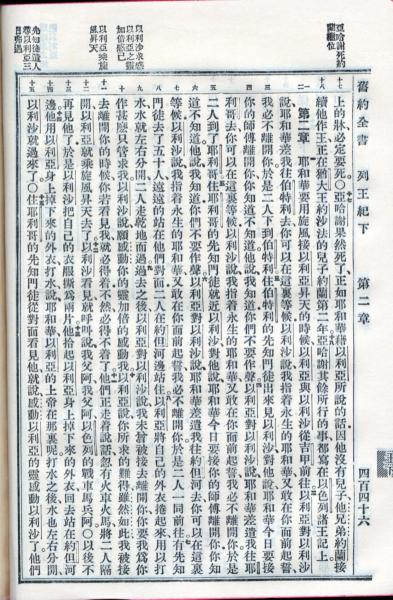 舊約全書 列王紀下 第二章 四百四十六
亞哈謝死約
蘭繼位
以利沙求感
以利亞之靈
加倍感己
以利亞乘旋
風昇天
先知徒遣人
尋以利亞三
日弗遇
上的牀必定要死○亞哈謝果然死了正如耶和華藉以利亞所說的話因他沒有兒子他兄弟約蘭接
續他作王正在猶大王約沙法的兒子約蘭第二年亞哈謝其餘所行的事都寫在以色列諸王記上
第二章 耶和華要用旋風接以利亞昇天的時候以利亞與以利沙從吉甲前往以利亞對以利沙
說耶和華差我往伯特利去你可以在這裏等候以利沙說我指着永生的耶和華又敢在你面前起誓
我必不離開你於是二人下到伯特利住伯特利的先知門徒出來見以利沙對他說耶和華今日要接
你的師傅離開你你知道不知道他說我知道你們不要作聲以利亞對以利沙說耶和華差遣我往耶
利哥去你可以在這裏等候以利沙說我指着永生的耶和華又敢在你面前起誓我必不離開你於是
二人到了耶利哥住耶利哥的先知門徒就近以利沙對他說耶和華今日要接你的師傅離開你你知
道不知道他說我知道你們不要作聲以利亞對以利沙說耶和華差遣我往約但河去你可以在這裏
等候以利沙說我指着永生的耶和華又敢在你面前起誓我必不離開你於是二人一同前往有先知
門徒去了五十人遠遠的站在他們對面二人在約但河邊站住以利亞將自己的外衣捲起來用以打
水水就左右分開二人走乾地而過過去之後以利亞對以利沙說我未曾被接去離開你你要我爲你
作甚麼只管求我以利沙說願感動你的靈加倍的感動我以利亞說你所求的難得雖然如此我被接
去離開你的時候你若看見我就必得着不然必得不着了他們正走着說話忽有火車火馬將二人隔
開以利亞就乘旋風昇天去了以利沙看見就呼叫說我父阿我父阿以色列的戰車馬兵阿○以後不
再見他了於是以利沙把自己的衣服撕爲兩片他拾起以利亞身上掉下來的外衣回去站在約但河
邊他用以利亞身上掉下來的外衣打水說耶和華以利亞的上帝在那裏呢打水之後水也左右分開
以利沙就過來了○住耶利哥的先知門徒從對面看見他就說感動以利亞的靈感動以利沙了他們